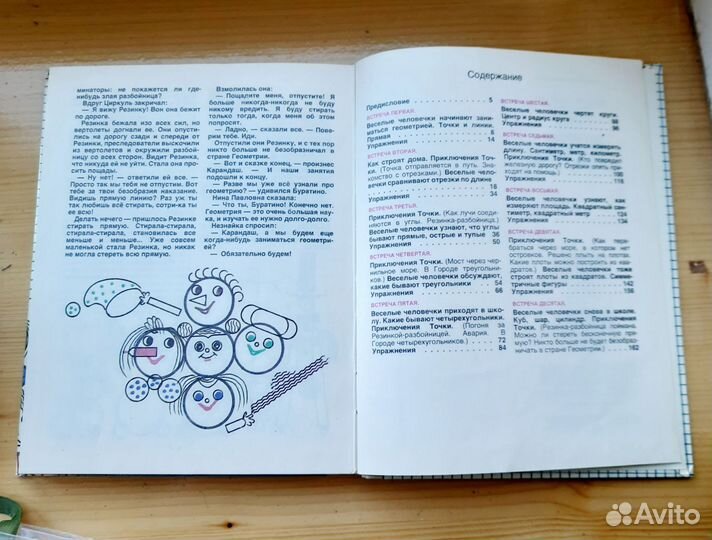 минаторы: не покажется ли где-
нибудь злая разбойница?
Вдруг Циркуль закричал:
— Я вижу Резинку! Вон она бежит
по дороге.
Резинка бежала изо всех сил, но
вертолеты догнали ее. Они опусти-
лись на дорогу сзади и спереди от
Резинки, преследователи выскочили
из вертолетов и окружили разбой-
ницу со всех сторон. Видит Резинка,
что никуда ей не уйти. Стала она про-
сить пощады.
— Ну нет! — ответили ей все. —
Просто так мы тебя не отпустим. Вот
тебе за твои безобразия наказание.
Видишь прямую линию? Раз уж ты
так любишь всё стирать, сотри-ка ты
ее всю!
Делать нечего — пришлось Резинке
стирать прямую. Стирала-стирала,
стирала-стирала, становилась все
меньше и меньше.. Уже совсем
маленькой стала Резинка, но никак
не могла стереть всю прямую.
Взмолилась она:
— Пощадите меня, отпустите! Я
больше никогда-никогда не буду
никому вредить. Я буду стирать
только тогда, когда меня об этом
попросят.
— Ладно, — сказали все. — Пове-
рим тебе. Иди.
Отпустили они Резинку, и с тех пор
никто больше не безобразничал в
стране Геометрии.
— Вот и сказке конец, — произнес
Карандаш. — И наши занятия
подошли к концу.
— Разве мы уже всё узнали про
геометрию? — удивился Буратино.
Нина Павловна сказала:
— Что ты, Буратино! Конечно нет.
Геометрия — это очень большая нау-
ка, и изучать ее нужно долго-долго.
Незнайка спросил:
— Карандаш, а мы будем еще
когда-нибудь заниматься геометри-
ей?
— Обязательно будем!
Содержание
Предисловие 5
ВСТРЕЧА ПЕРВАЯ.
Веселые человечки начинают зани-
маться геометрией. Точки и линии.
Прямая 8
Упражнения 14
ВСТРЕЧА ВТОРАЯ.
Как строят дома. Приключения Точ-
ки. (Точка отправляется в путь. Зна-
комство с отрезками.) Веселые чело-
вечки сравнивают отрезки по длине
18
Упражнения 34
ВСТРЕЧА ТРЕТЬЯ.
Приключения Точки. (Как лучи соеди-
няются в углы. Резинка-разбойница.)
Веселые человечки узнают, что углы
бывают прямые, острые и тупые 36
Упражнения 50
ВСТРЕЧА ЧЕТВЕРТАЯ.
Приключения Точки. (Мост через чер-
нильное море. В Городе треугольни-
ков.) Веселые человечки обсуждают,
какие бывают треугольники 54
Упражнения 66
ВСТРЕЧА ПЯТАЯ.
Веселые человечки приходят в шко-
лу. Какие бывают четырехугольники.
Приключения Точки. (Погоня за
Резинкой-разбойницей. Авария. В
Городе четырехугольников.) 72
Упражнения 84
ВСТРЕЧА ШЕСТАЯ.
Веселые человечки чертят круги.
Центр и радиус круга 88
Упражнения 96
ВСТРЕЧА СЕДЬМАЯ.
Веселые человечки учатся измерять
длину. Сантиметр, метр, километр.
Приключения Точки. (Кто повредил
железную дорогу? Отрезки спешат
на помощь.) 100
Упражнения 118
ВСТРЕЧА ВОСЬМАЯ.
Веселые человечки узнают, как
измеряют площадь. Квадратный сан-
тиметр, квадратный метр 124
Упражнения 134
ВСТРЕЧА ДЕВЯТАЯ.
Приключения Точки. (Как пере-
браться через море, в котором нет
островков. Решено плыть на плотах.
Какие плоты можно построить из
квадратов.) Веселые человечки тоже
строят плоты из квадратов. Симме-
тричные фигуры 142
Упражнения 156
ВСТРЕЧА ДЕСЯТАЯ.
Веселые человечки снова в школе.
Куб, шар, цилиндр. Приключения
Точки. (Резинка-разбойница поймана.
Можно ли стереть бесконечную пря-
мую? Никто больше не будет безобраз-
ничать в стране Геометрии.) 162
Avito